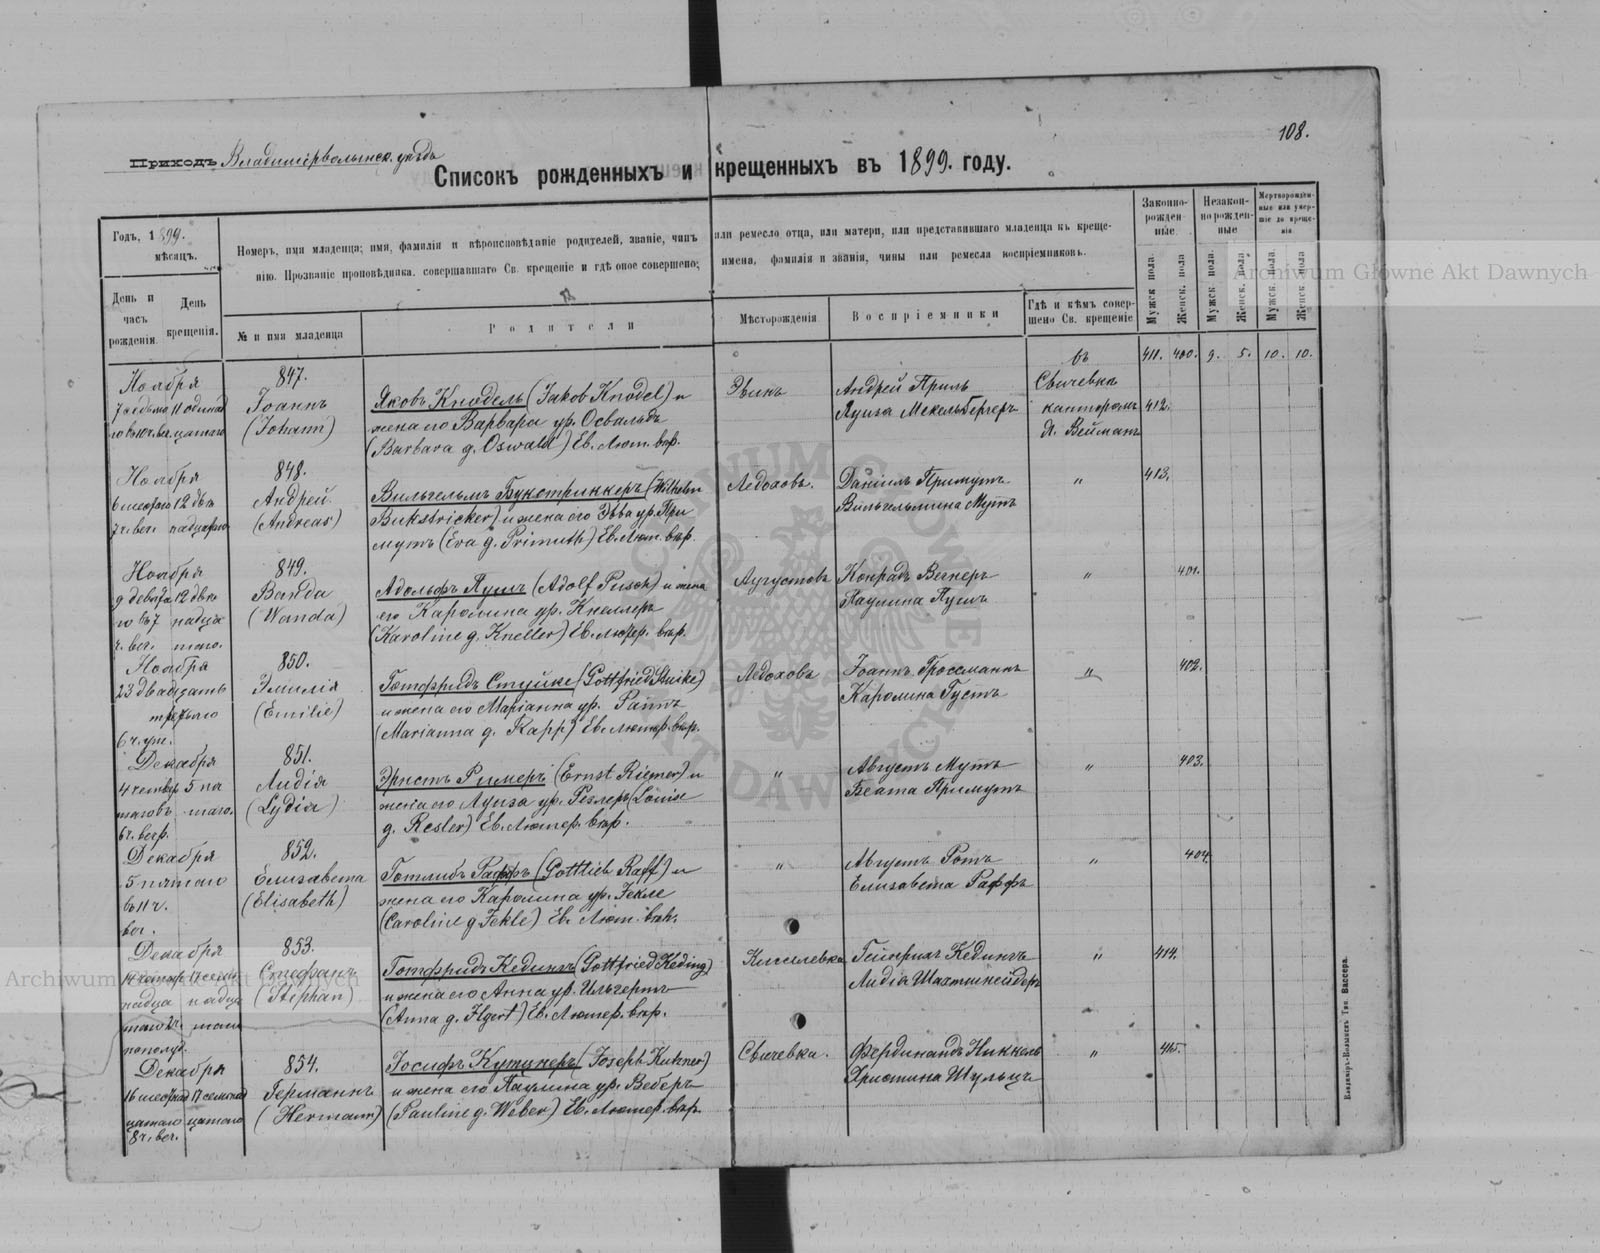 108.
Приходъ Владимірволынск. уѣздъ
Списокъ рожденныхъ и крещенныхъ въ 1899. году.
Годъ, 1899. мѣсяцъ.
День и часъ рожденія.
День крещенія.
Номеръ, имя младенца; имя, фамилія и вѣроисповѣданіе родителей, званіе, чинъ или ремесло отца, или матери, или представившаго младенца къ креще-
нію. Прозваніе проповѣдника, совершавшаго Св. крещеніе и гдѣ оное совершено; имена, фамилія и званія, чины или ремесла воспріемниковъ.
№ и имя младенца
Родители
Мѣсторожденія
Воспріемники
Гдѣ и кѣмъ совершено Св. крещеніе
Законно-рожденные.
Незакон-норожден-ные
Мертворожден-ные или умер-шіе до креще-нія.
Мужск. пола.
Женск. пола
Мужск. пола.
Женск. пола.
Мужск. пола.
Женск. пола
411. 400. 9. 5. 10. 10.
Ноября
7 седьмо 11 одинад
го въ 10 ч. веч. цатаго
847.
Іоаннъ
(Johann)
Яковъ Кнодель (Jakob Knodel) и
жена его Варвара ур. Освальдъ
(Barbara g. Oswald) Ев. Лют. вѣр.
Эвинъ
Андрей Приль
Луиза Мекельбергеръ
въ
Свичевкѣ
канторомъ
Я. Вейманъ
412.
Ноября
6 шестаго 12 двѣ
7 ч. веч. надцатаго
848.
Андрей
(Andreas)
Вильгельмъ Букстриккеръ (Wilhelm
Bukstricker) и жена его Эва ур. При
мутъ (Eva g. Primuth) Ев. Лют. вѣр.
Ледоховъ.
Даніилъ Примутъ
Вильгельмина Мутъ
"
413.
Ноября
9 девята 12 двѣ
го въ 7 надца
ч. веч. таго.
849.
Ванда
(Wanda)
Адольфъ Пушъ (Adolf Pusch) и жена
его Каролина ур. Кнеллеръ
(Karoline g. Kneller) Ев. лютер. вѣр.
Аугустовъ
Конрадъ Вегнеръ
Паулина Пушъ
"
401.
Ноября
23 двадцать
третьяго
6 ч. ут.
850.
Эмилія
(Emilie)
Готфридъ Стуйке (Gottfried Stuike)
и жена его Маріанна ур. Раппъ
(Marianna g. Rapp) Ев. лютер. вѣр.
Ледоховъ
Іоаннъ Гроссманнъ
Каролина Густъ
"
402.
Декабря
4 четвер 5 пя
таговъ таго.
6 ч. вечр.
851.
Лидія
(Lydia)
Эрнстъ Римеръ (Ernst Riemer) и
жена его Луиза ур. Реслеръ (Louise
g. Resler) Ев. Лютер. вѣр.
"
Августъ Мутъ
Беата Примутъ
"
403.
Декабря
5 пятаго
въ 11 ч.
веч.
852.
Елизавета
(Elisabeth)
Готлибъ Раффъ (Gottlieb Raff) и
жена его Каролина ур. Іекле
(Caroline g Jekle) Ев. Лют. вѣр.
"
Августъ Ротъ
Елизавета Раффъ
"
404.
Декабря
14 четыр 17 семь
надца надца
таго 2 ч. таго
пополуд.
853.
Стефанъ
(Stephan)
Готфридъ Кедингъ (Gottfried Keding)
и жена его Анна ур. Ильгертъ
(Anna g. Ilgert) Ев. Лютер. вѣр.
Киселевка
Гейнрихъ Кедингъ
Лидія Шахтшнейдеръ
"
414.
Декабря
16 шестнад 17 семнад
цатаго цатаго
8 ч. веч.
854.
Германнъ
(Hermann)
Іосифъ Кутцнеръ (Joseph Kutzner)
и жена его Паулина ур. Веберъ
(Pauline g. Weber) Ев. Лютер. вѣр.
Свичевка.
Фердинандъ Никкель
Христина Шульцъ
"
415.
Владиміръ-Волынскъ Тип. Вассера.
Archiwum Główne Akt Dawnych
Archiwum Główne Akt Dawnych
ARCHIWUM GŁÓWNE AKT DAWNYCH